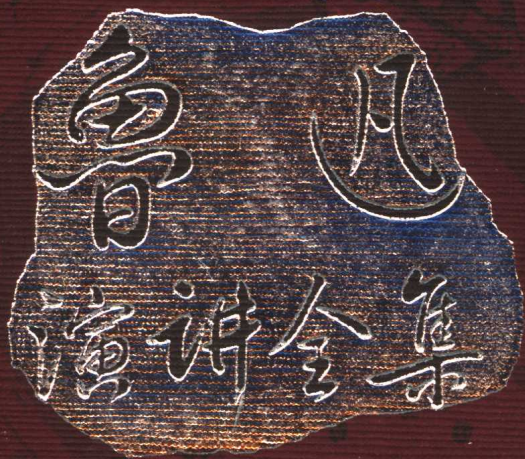 鲁凡
演讲全集